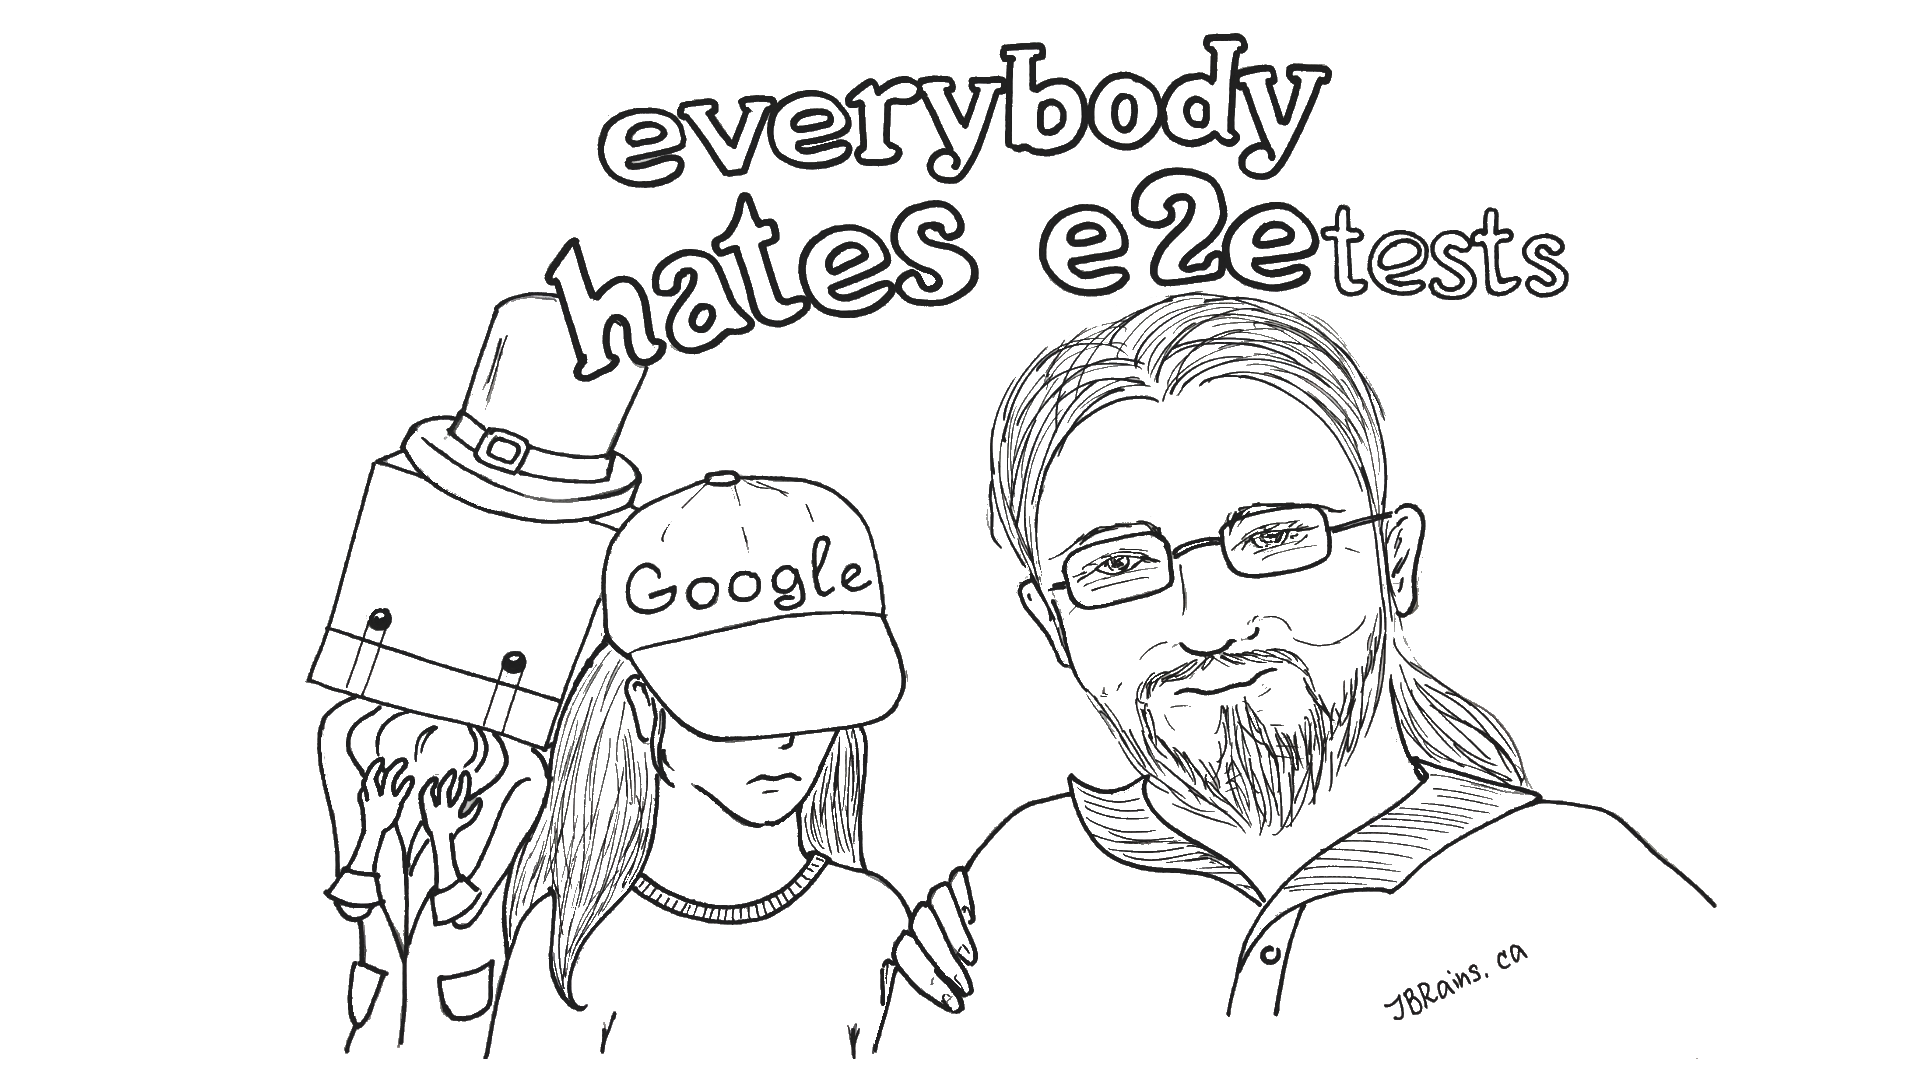 everybody
hates e2e tests
Google
JBRains.ca